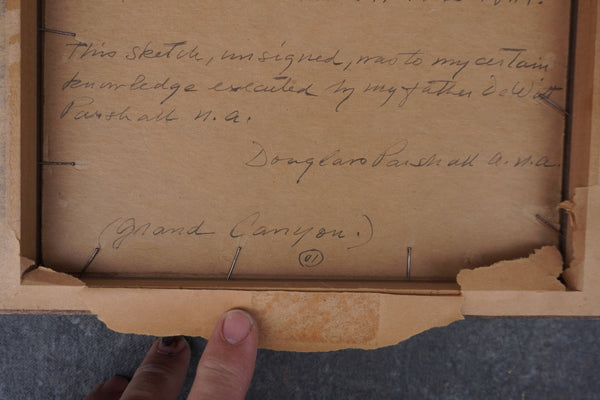 This sketch, unsigned, was to my certain
knowledge executed by my father DeWitt
Parshall N.A.
Douglass Parshall A.N.A.
(Grand Canyon.)